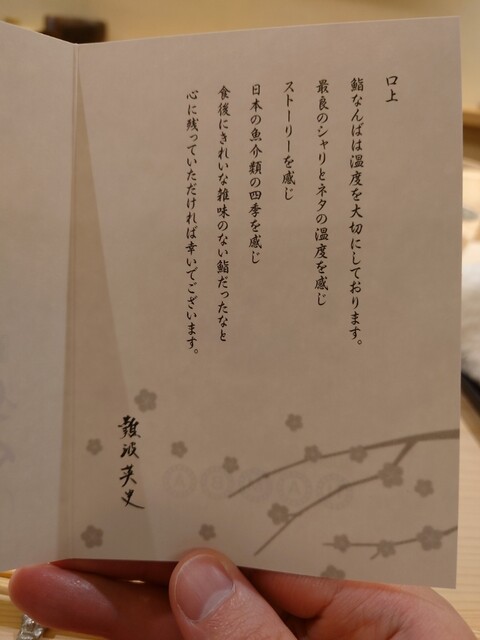 口上
鮨なんばは温度を大切にしております。
最良のシャリとネタの温度を感じ
ストーリーを感じ
日本の魚介類の四季を感じ
食後にきれいな雑味のない鮨だったなと
心に残っていただければ幸いでございます。
難波英史